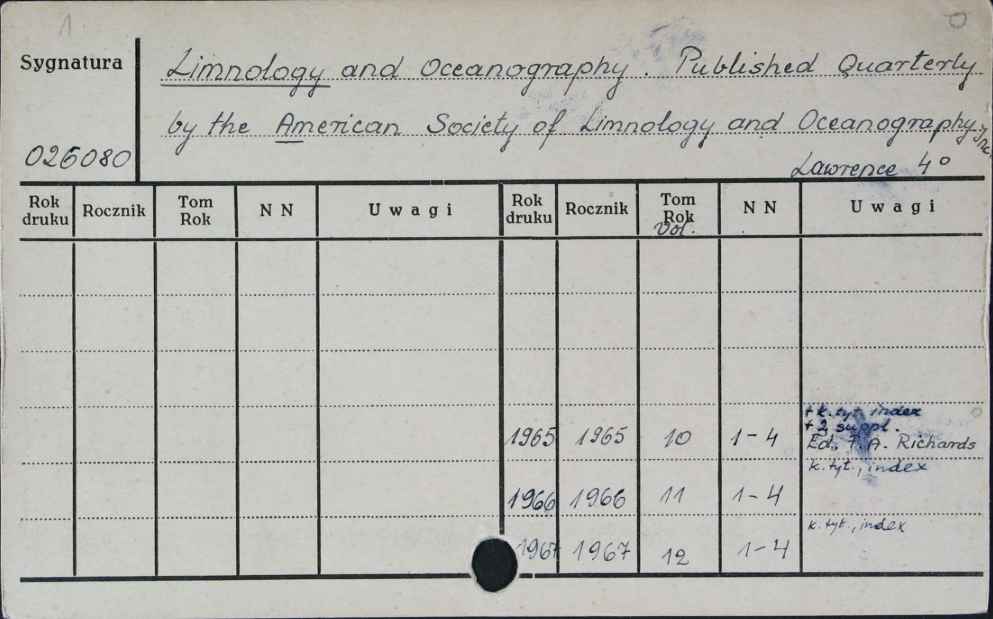 1
Sygnatura
Limnology and Oceanography. Published Quarterly
by the American Society of Limnology and Oceanography,
026080
Lawrence 4°
Rok druku Rocznik Tom Rok N N Uwagi Rok druku Rocznik Tom Rok N N Uwagi
Vol.
+ k. tyt. index
+ 2 suppl.
1965 1965 10 1-4 Ed. F. A. Richards
k. tyt., index
1966 1966 11 1-4
k. tyt., index
1967 1967 12 1-4